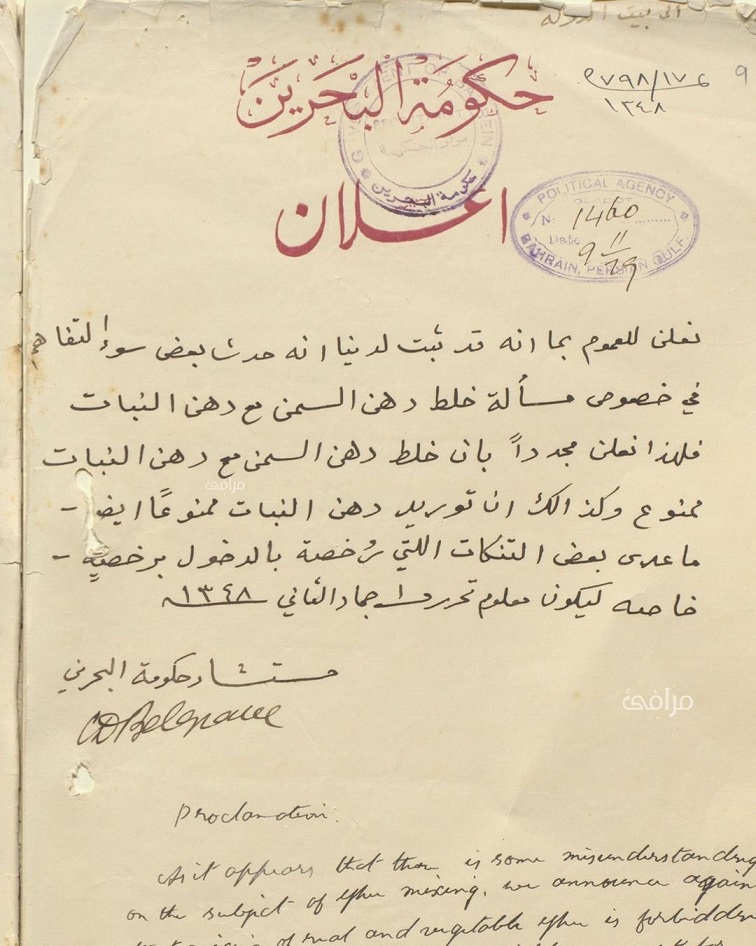 الى بيت الدولة
9
حكومة البحرين
٩٧٩٨/١٧٦
١٣٤٨
GOVERNMENT OF BAHREIN
مركز الحكومة
حكومة البحرين
اعلان
POLITICAL AGENCY
No. 1460
Date 9/11/29
BAHRAIN, PERSIAN GULF.
نعلن للعموم بما انه قد ثبت لدينا انه حدث بعض سوء التفاهم
في خصوص مسألة خلط دهن السمن مع دهن النبات
فلهذا نعلن مجدداً بان خلط دهن السمن مع دهن النبات
ممنوع وكذالك ان توريد دهن النبات ممنوعًا ايضا -
ما عدى بعض التنكات اللتي رُخصة بالدخول برخصةٍ -
خاصه ليكون معلوم تحرير جماد الثاني ١٣٤٨
مستشار حكومة البحرين
CDBelgrave
مرافئ
مرافئ
Proclamation.
As it appears that there is some misunderstanding
on the subject of ghee mixing, we announce again
of real and vegetable ghee is forbidden